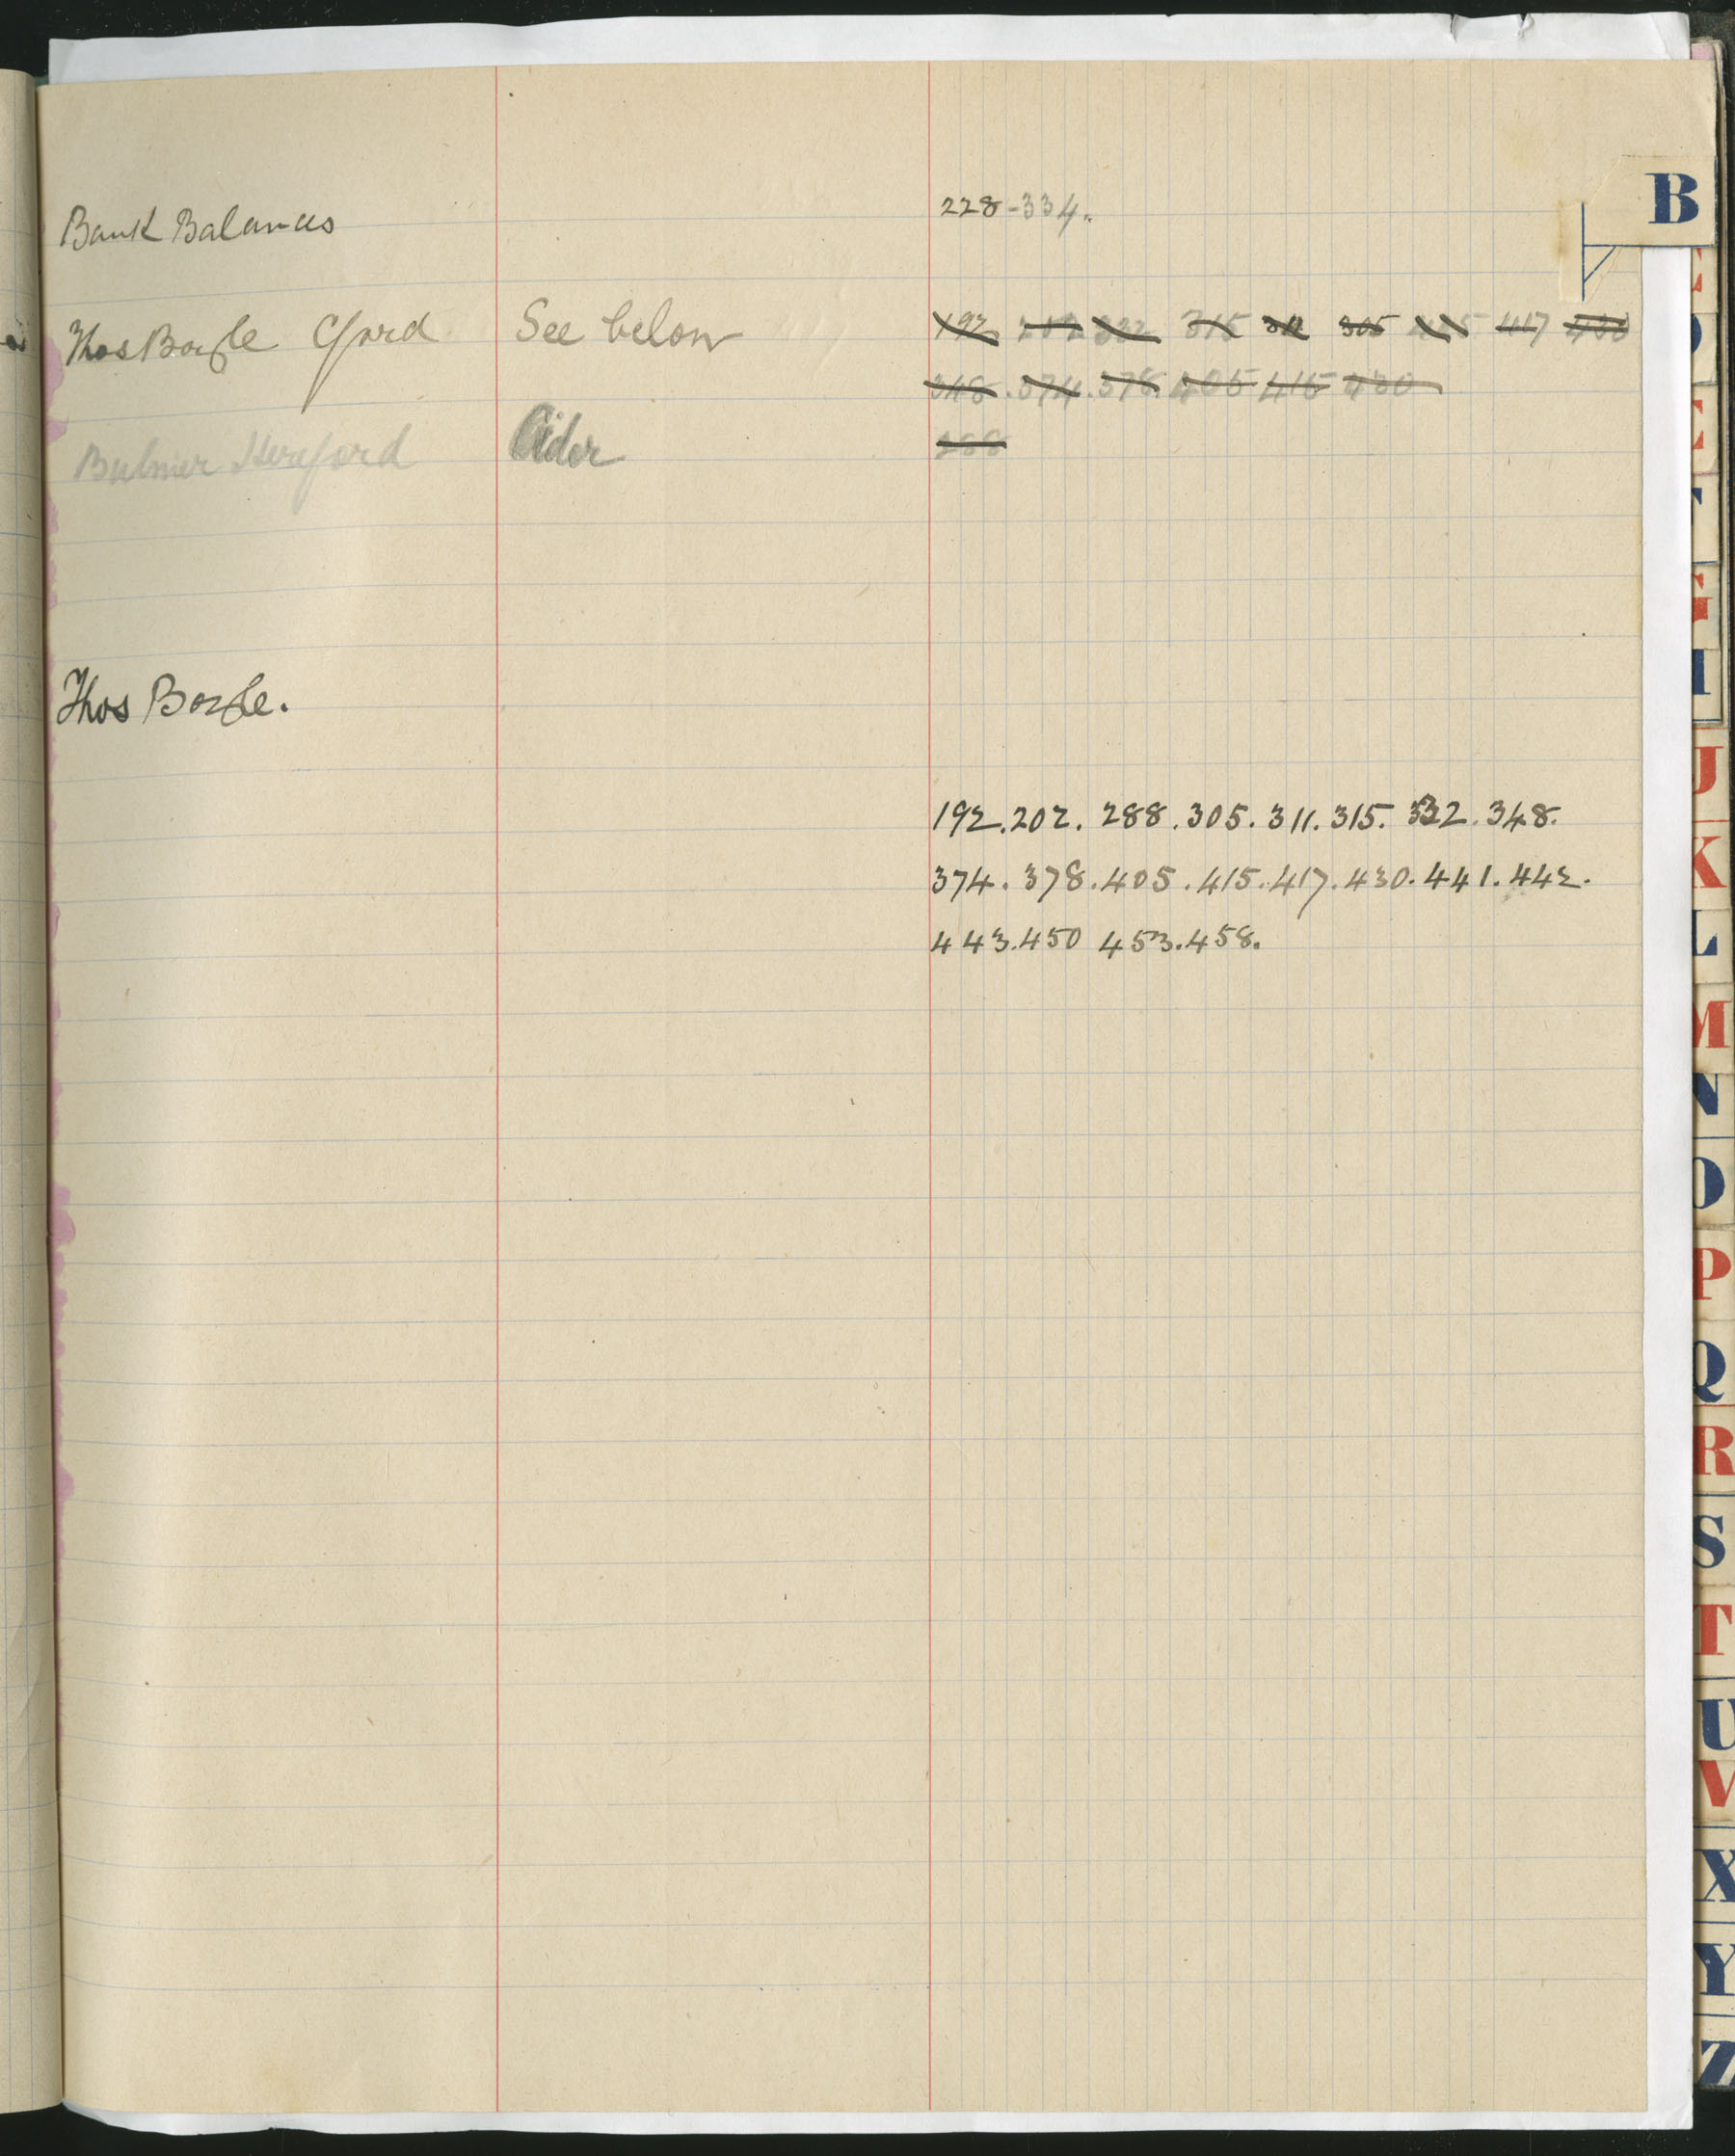 B
Bank Balances 228-334.
Thos Boyle Cford See below 192 202 332 315 311 305 417 430
348.374.378.405 415 430
Bulmer Hereford Cider 288
Thos Boyle.
192.202.288.305.311.315.332.348.
374.378.405.415.417.430.441.442.
443.450 453.458.
J
K
L
M
N
O
P
Q
R
S
T
U
V
X
Y
Z